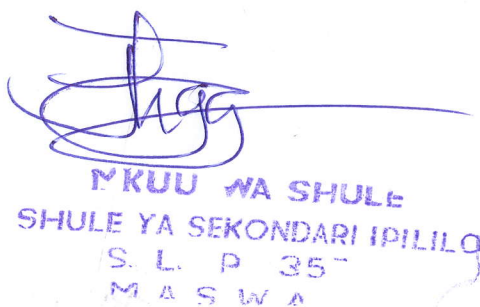 MKUU WA SHULE
SHULE YA SEKONDARI IPILILO
S. L. P 35
MASWA